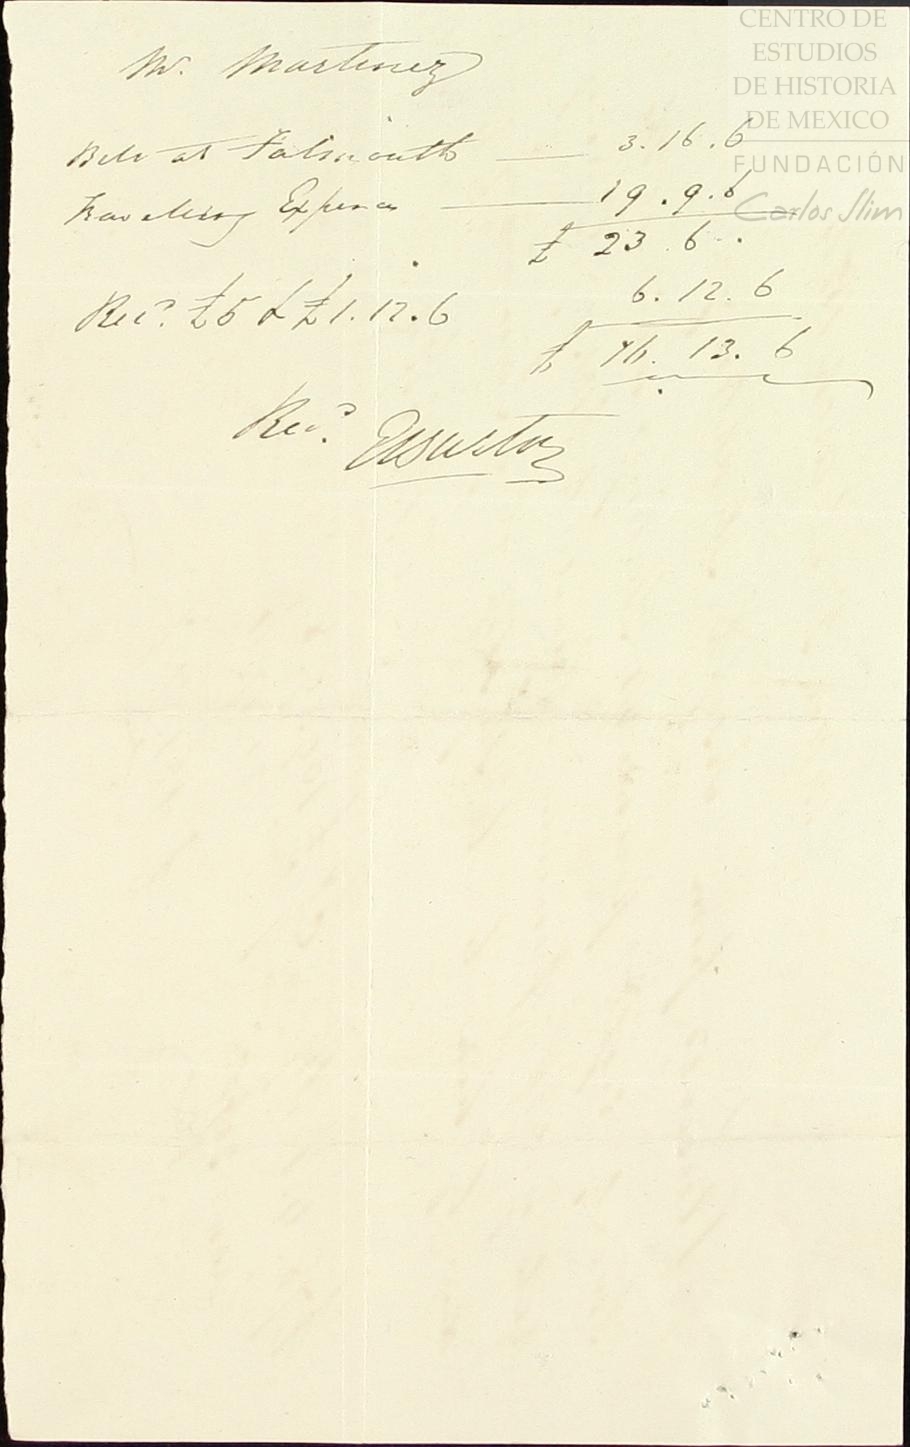 CENTRO DE
ESTUDIOS
DE HISTORIA
DE MEXICO
FUNDACIÓN
Carlos Slim
Mr. Martinez
Bill at Falmouth — 3.16.6
Travelling Expences — 19.9.6
£ 23.6.
Recd. £5 & £1.12.6 6.12.6
£ 16.13.6
Recd.